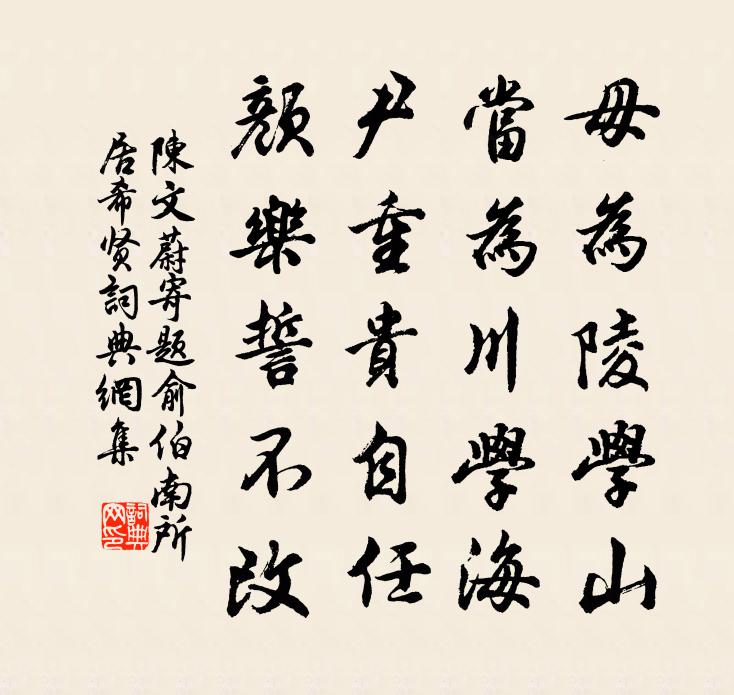 毋為陵學山
當為川學海
尹重貴自任
顏樂誓不改
陳文蔚寄題俞伯南所
居希贤詞典網集
詞典网印